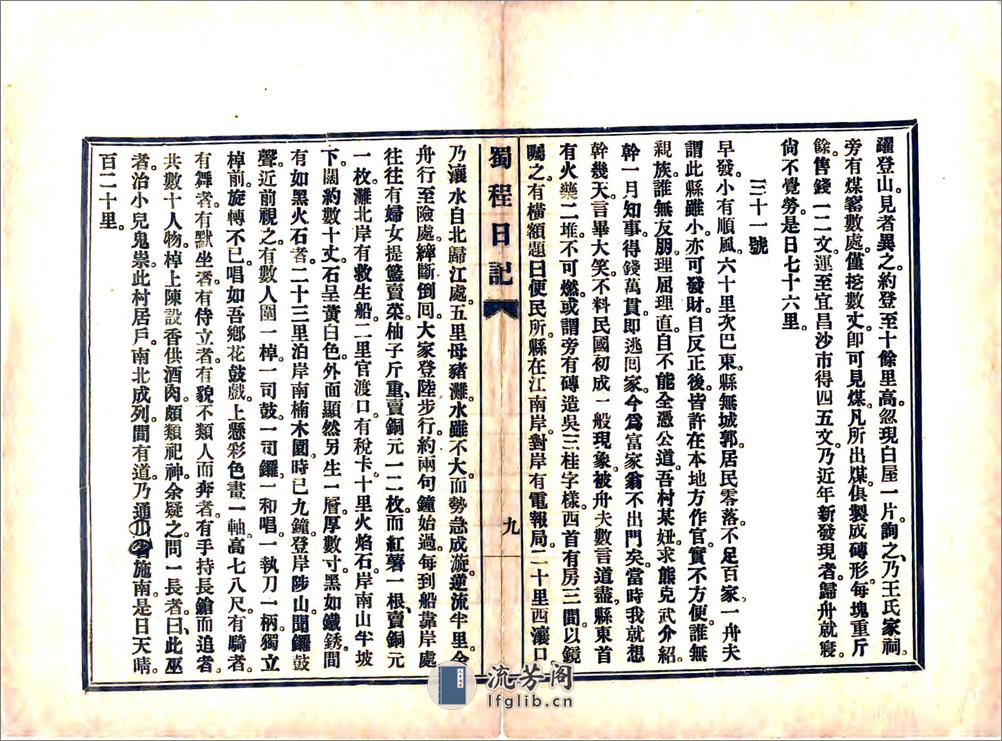 躍登山見者異之約登至十餘里高忽現白屋一片詢之乃王氏家祠
旁有煤窰數處僅挖數丈卽可見煤凡所出煤俱製成磚形每塊重斤
餘售錢一二文運至宜昌沙市得四五文乃近年新發現者歸舟就寢
尙不覺勞是日七十六里
三十一號
早發小有順風六十里次巴東縣無城郭居民零落不足百家一舟夫
謂此縣雖小亦可發財自反正後皆許在本地方作官實不方便誰無
親族誰無友朋理屈理直自不能全憑公道吾村某妞求熊克武介紹
幹一月知事得錢萬貫卽逃囘家今爲富家翁不出門矣當時我就想
幹幾天言畢大笑不料民國初成一般現象被舟夫數言道盡縣東首
有火藥二堆不可燃或謂旁有磚造吳三桂字樣西首有房三間以鏡
矚之有橫額題曰便民所縣在江南岸對岸有電報局二十里西瀼口
蜀程日記
九
乃瀼水自北歸江處五里母豬灘水雖不大而勢急成漩逆流半里余
舟行至險處縴斷倒囘大家登陸步行約兩句鐘始過每到船靠岸處
往往有婦女提籃賣菜柚子斤重賣銅元一二枚而紅薯一根賣銅元
一枚灘北岸有救生船二里官渡口有稅卡十里火焰石岸南山半坡
下闊約數十丈石呈黃白色外面顯然另生一層厚數寸黑如鐵銹間
有如黑火石者二十三里泊岸南楠木園時已九鐘登岸陟山聞鑼鼓
聲近前視之有數人圍一棹一司鼓一司鑼一和唱一執刀一柄獨立
棹前旋轉不已唱如吾鄉花鼓戲上懸彩色畫一軸高七八尺有騎者
有舞者有默坐者有侍立者有貌不類人而奔者有手持長鎗而追者
共數十人物棹上陳設香供酒肉頗類祀神余疑之問一長者曰此巫
者治小兒鬼祟此村居戶南北成列間有道乃通施南是日天晴
百二十里
流芳阁
lfglib.cn